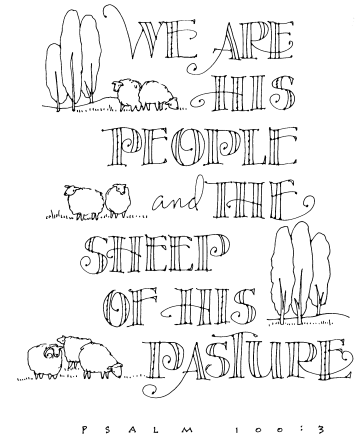 WE ARE
HIS
PEOPLE
and THE
SHEEP
OF HIS
PASTURE
PSALM 100:3